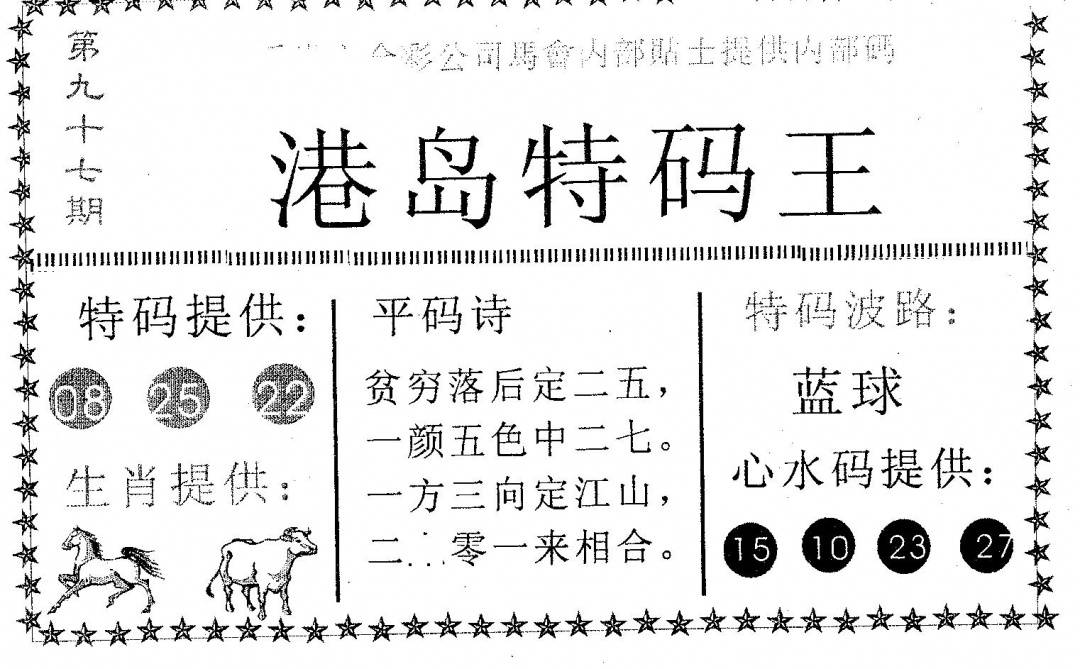 第九十七期
彩公司馬會内部貼士提供内部碼
港岛特码王
特码提供：
08 25 22
生肖提供：
平码诗
贫穷落后定二五，
一颜五色中二七。
一方三向定江山，
二...零一来相合。
特码波路：
蓝球
心水码提供：
15 10 23 27